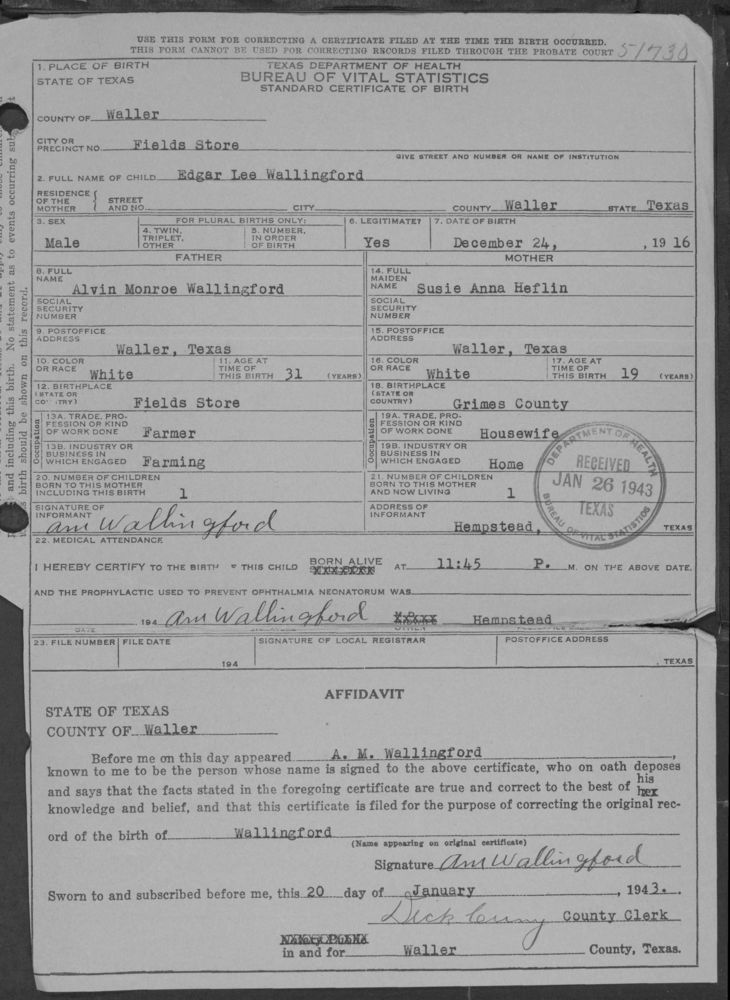 USE THIS FORM FOR CORRECTING A CERTIFICATE FILED AT THE TIME THE BIRTH OCCURRED.
THIS FORM CANNOT BE USED FOR CORRECTING RECORDS FILED THROUGH THE PROBATE COURT 51730
1. PLACE OF BIRTH TEXAS DEPARTMENT OF HEALTH
STATE OF TEXAS BUREAU OF VITAL STATISTICS
STANDARD CERTIFICATE OF BIRTH
COUNTY OF Waller
CITY OR PRECINCT NO. Fields Store
GIVE STREET AND NUMBER OR NAME OF INSTITUTION
2. FULL NAME OF CHILD Edgar Lee Wallingford
RESIDENCE OF THE MOTHER STREET AND NO. CITY COUNTY Waller STATE Texas
3. SEX FOR PLURAL BIRTHS ONLY: 6. LEGITIMATE? 7. DATE OF BIRTH
4. TWIN, TRIPLET, OTHER 5. NUMBER, IN ORDER OF BIRTH
Male Yes December 24, , 19 16
FATHER MOTHER
8. FULL NAME Alvin Monroe Wallingford 14. FULL MAIDEN NAME Susie Anna Heflin
SOCIAL SECURITY NUMBER SOCIAL SECURITY NUMBER
9. POSTOFFICE ADDRESS Waller, Texas 15. POSTOFFICE ADDRESS Waller, Texas
10. COLOR OR RACE White 11. AGE AT TIME OF THIS BIRTH 31 (YEARS) 16. COLOR OR RACE White 17. AGE AT TIME OF THIS BIRTH 19 (YEARS)
12. BIRTHPLACE (STATE OR CO TRY) Fields Store 18. BIRTHPLACE (STATE OR COUNTRY) Grimes County
Occupation 13A. TRADE, PROFESSION OR KIND OF WORK DONE Farmer Occupation 19A. TRADE, PROFESSION OR KIND OF WORK DONE Housewife
13B. INDUSTRY OR BUSINESS IN WHICH ENGAGED Farming 19B. INDUSTRY OR BUSINESS IN WHICH ENGAGED Home
20. NUMBER OF CHILDREN BORN TO THIS MOTHER INCLUDING THIS BIRTH 1 21. NUMBER OF CHILDREN BORN TO THIS MOTHER AND NOW LIVING 1
DEPARTMENT OF HEALTH
RECEIVED
JAN 26 1943
TEXAS
BUREAU OF VITAL STATISTICS
SIGNATURE OF INFORMANT am Wallingford ADDRESS OF INFORMANT Hempstead, TEXAS
22. MEDICAL ATTENDANCE
I HEREBY CERTIFY TO THE BIRTH THIS CHILD BORN ALIVE AT 11:45 P. M. ON THE ABOVE DATE.
AND THE PROPHYLACTIC USED TO PREVENT OPHTHALMIA NEONATORUM WAS
194 am Wallingford Hempstead
DATE
23. FILE NUMBER FILE DATE SIGNATURE OF LOCAL REGISTRAR POSTOFFICE ADDRESS
194 , TEXAS
AFFIDAVIT
STATE OF TEXAS
COUNTY OF Waller
Before me on this day appeared A. M. Wallingford,
known to me to be the person whose name is signed to the above certificate, who on oath deposes
and says that the facts stated in the foregoing certificate are true and correct to the best of his
knowledge and belief, and that this certificate is filed for the purpose of correcting the original rec-
ord of the birth of Wallingford
(Name appearing on original certificate)
Signature am Wallingford
Sworn to and subscribed before me, this 20 day of January, 1943.
Dick Cuny County Clerk
in and for Waller County, Texas.
and including this birth. No statement as to events occurring
birth should be shown on this record.